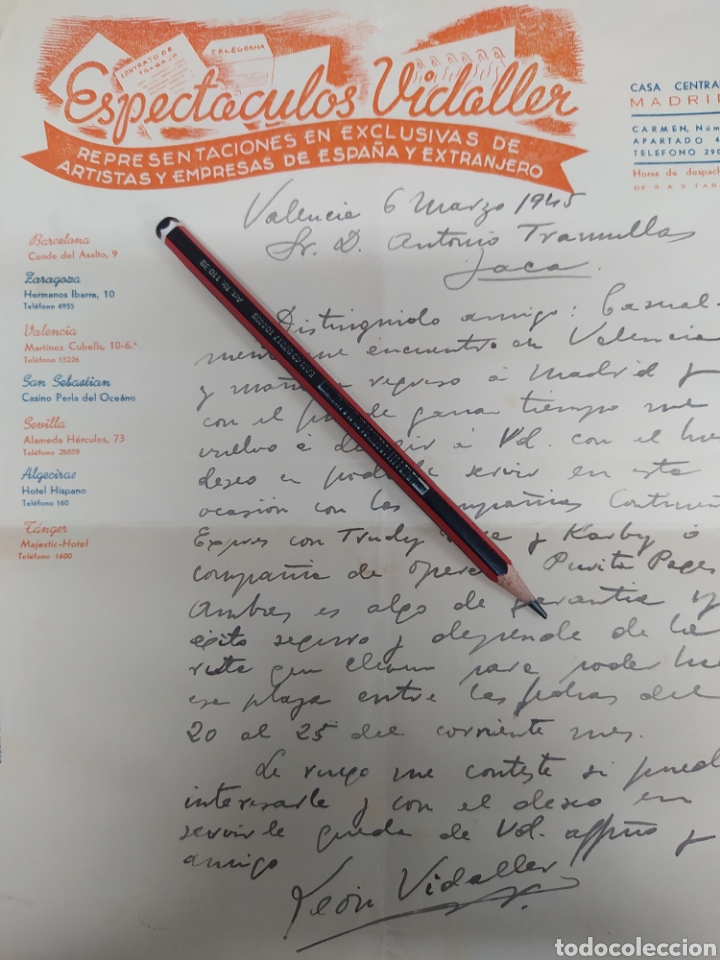 CONTRATO DE TRABAJO
TELEGRAMA
Espectaculos Vidaller
REPRESENTACIONES EN EXCLUSIVAS DE
ARTISTAS Y EMPRESAS DE ESPAÑA Y EXTRANJERO
CASA CENTRA
MADRID
CARMEN, Núm
APARTADO 4
TELEFONO 290
Horas de despach
DE 5 A 8 TAR
Barcelona
Conde del Asalto, 9
Zaragoza
Hermanos Ibarra, 10
Teléfono 4955
Valencia
Martinez Cubells, 10-6.º
Teléfono 15226
San Sebastian
Casino Perla del Océano
Sevilla
Alameda Hércules, 73
Teléfono 28059
Algeciras
Hotel Hispano
Teléfono 160
Tánger
Majestic-Hotel
Teléfono 1600
Valencia 6 Marzo 1945
Sr. D. Antonio Tramullas
Jaca.
Distinguido amigo: Casual-
me encuentro en Valencia
y regreso á Madrid y
con el ganar tiempo me
vuelvo á á Vd. con el
deseo en servir en esta
ocasión con las compañias
Expres con Trudy y Karby ó
compañia de Purita Pages
Ambas es algo de garantia y
éxito seguro y depende de la
ruta que lleven para poder
esa plaza entre las fechas del
20 al 25 del corriente mes.
Le ruego me conteste si pued
interesarle y con el deseo en
servirle queda de Vd. affmo y
amigo
León Vidaller
todocoleccion